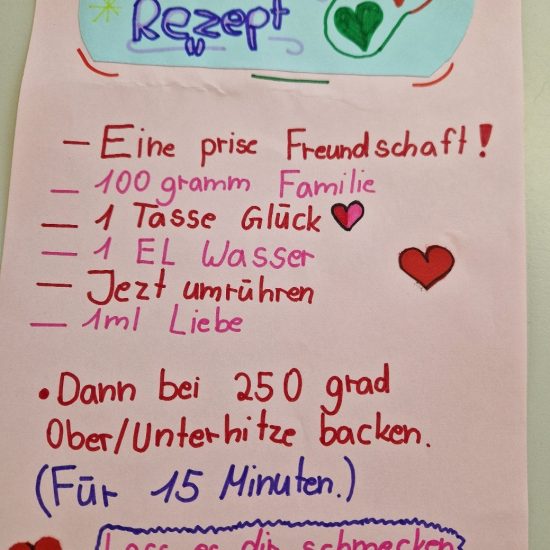 Rezept
– Eine prise Freundschaft!
– 100 gramm Familie
– 1 Tasse Glück
– 1 EL Wasser
– Jezt umrühren
– 1ml Liebe
• Dann bei 250 grad
Ober/Unterhitze backen.
(Für 15 Minuten.)
Lass es dir schmecken